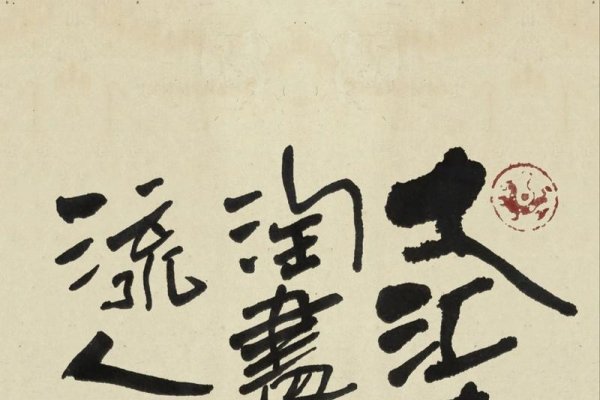 大江
淘盡
流人